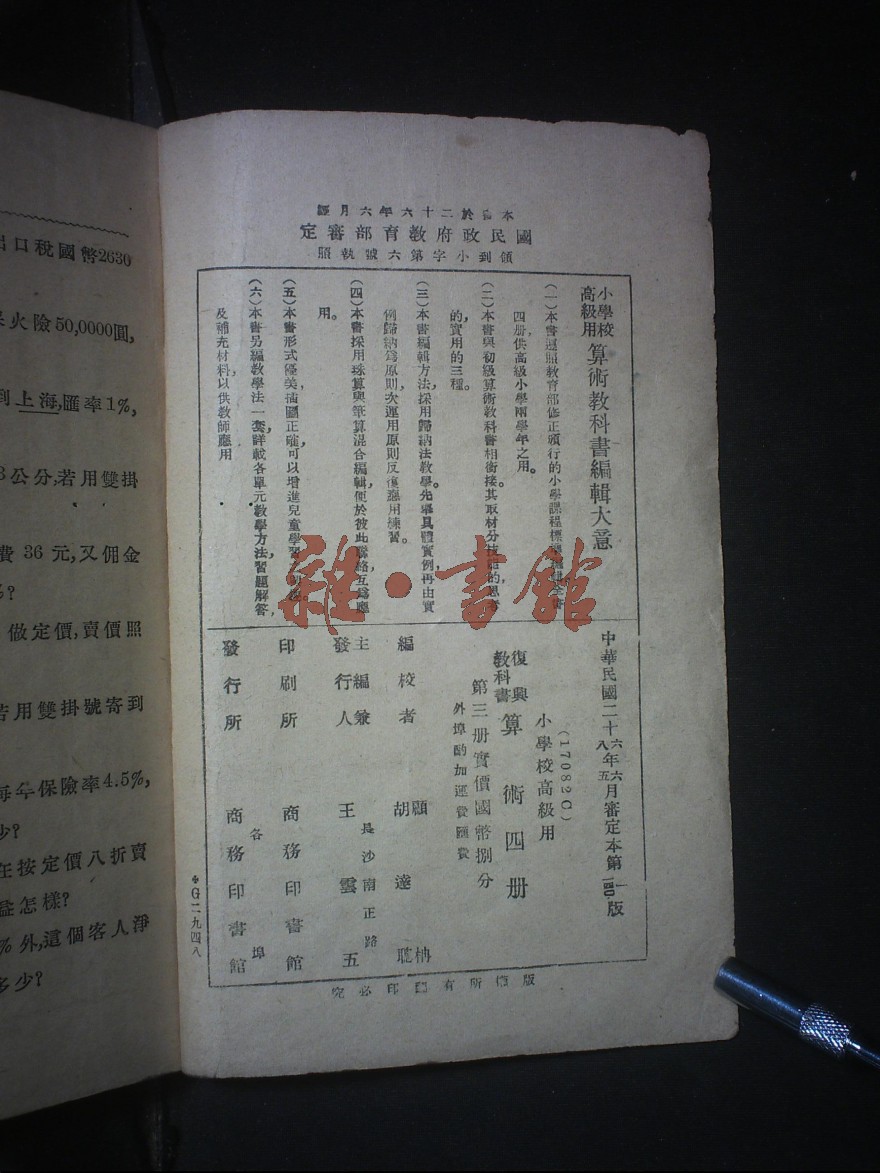 本書於二十六年六月經
國民政府教育部審定
領到小字第六號執照
小學校高級用 算術教科書編輯大意
(一)本書遵照教育部修正頒行的小學課程標準編輯全書
四册供高級小學兩學年之用。
(二)本書與初級算術教科書相銜接,其取材分技能的,思考
的,實用的三種。
(三)本書編輯方法,採用歸納法教學。先舉具體實例,再由實
例歸納爲原則,次運用原則反復應用練習。
(四)本書採用珠算與筆算混合編輯,便於彼此聯絡互爲應
用。
(五)本書形式優美,插圖正確,可以增進兒童學習
(六)本書另編教學法一套,詳載各單元教學方法,習題解答,
及補充材料,以供教師應用
中華民國二十六年六月審定本第一版
八 五
(17082C)
小學校高級用
復興教科書 算術四册
第三册實價國幣捌分
外埠酌加運費匯費
編校者 胡達聰 顧柟
主編兼發行人 王雲五
長沙南正路
印刷所 商務印書館
發行所 商務印書館
各埠
版權所有翻印必究
*G二九四八
雜·書館
出口稅國幣2630
火險50,0000圓,
到上海,匯率1%,
公分,若用雙掛
費36元,又佣金
做定價,賣價照
若用雙掛號寄到
每年保險率4.5%,
少?
在按定價八折賣
益怎樣?
%外,這個客人淨
多少?